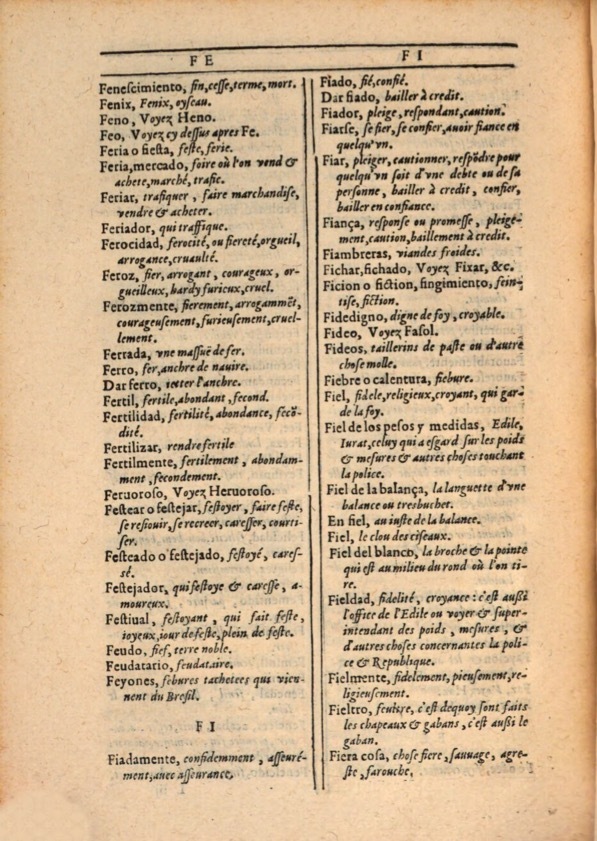 FE
Fenescimiento, fin, cesse, terme, mort.
Fenix, Fenix, oyseau.
Feno, Voyez Heno.
Feo, Voyez cy dessus apres Fe.
Feria o fiesta, feste, ferie.
Feria, mercado, foire où l'on vend &
achete, marché, trafic.
Feriar, trafiquer, faire marchandise,
vendre & acheter.
Feriador, qui traffique.
Ferocidad, ferocité, ou fiereté, orgueil,
arrogance, cruaulté.
Feroz, fier, arrogant, courageux, or-
gueilleux, hardy furieux, cruel.
Ferozmente, fierement, arrogammẽt,
courageusement, furieusement, cruel-
lement.
Ferrada, vne massuë de fer.
Ferro, fer, anchre de nauire.
Dar ferro, ietter l'anchre.
Fertil, fertile, abondant, fecond.
Fertilidad, fertilité, abondance, fecõ-
dité.
Fertilizar, rendre fertile
Fertilmente, fertilement, abondam-
ment, fecondement.
Feruoroso, Voyez Heruoroso.
Festear o festejar, festoyer, faire feste,
se resiouir, se recreer, caresser, courti-
ser.
Festeado o festejado, festoyé, cares-
sé.
Festejador, qui festoye & caresse, a-
moureux.
Festiual, festoyant, qui fait feste,
ioyeux, iour de feste, plein de feste.
Feudo, fief, terre noble.
Feudatario, feudataire.
Feyones, febures tachetees qui vien-
nent du Bresil.
FI
Fiadamente, confidemment, asseuré-
ment, auec asseurance.
FI
Fiado, fié, confié.
Dar fiado, bailler à credit.
Fiador, pleige, respondant, caution.
Fiarse, se fier, se confier, auoir fiance en
quelqu'vn.
Fiar, pleiger, cautionner, respõdre pour
quelqu'vn soit d'vne debte ou de sa
personne, bailler à credit, confier,
bailler en confiance.
Fiança, response ou promesse, pleige-
ment, caution, baillement à credit.
Fiambreras, viandes froides.
Fichar, fichado, Voyez Fixar, &c.
Ficion o fiction, fingimiento, fein-
tise, fiction.
Fidedigno, digne de foy, croyable.
Fideo, Voyez Fasol.
Fideos, taillerins de paste ou d'autre
chose molle.
Fiebre o calentura, fiebure.
Fiel, fidele, religieux, croyant, qui gar-
de la foy.
Fiel de los pesos y medidas, Edile,
Iurat, celuy qui a esgard sur les poids
& mesures & autres choses touchant
la police.
Fiel de la balança, la languette d'vne
balance ou tresbuchet.
En fiel, au iuste de la balance.
Fiel, le clou des ciseaux.
Fiel del blanco, la broche & la pointe
qui est au milieu du rond où l'on ti-
re.
Fieldad, fidelité, croyance: c'est aussi
l'office de l'Edile ou voyer & super-
intendant des poids, mesures, &
d'autres choses concernantes la poli-
ce & Republique.
Fielmente, fidelement, pieusement, re-
ligieusement.
Fieltro, feultre, c'est dequoy sont faits
les chapeaux & gabans, c'est aussi le
gaban.
Fiera cosa, chose fiere, sauuage, agre-
ste, farouche.